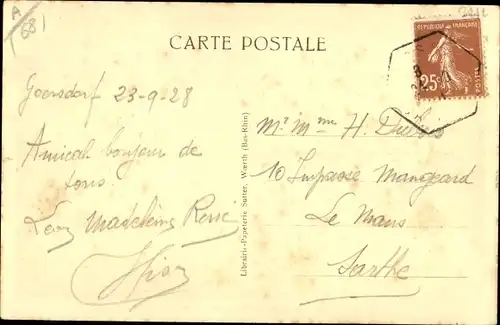 A
(68)
CARTE POSTALE
REPUBLIQUE FRANÇAISE
25c
POSTES
Goersdorf 23-9-28
Amical bonjour de
tous
Madeleine René
Mr Mme H.
10 Impasse Mangeard
Le Mans
Sarthe
Librairie-Papeterie Sutter, Wœrth (Bas-Rhin)